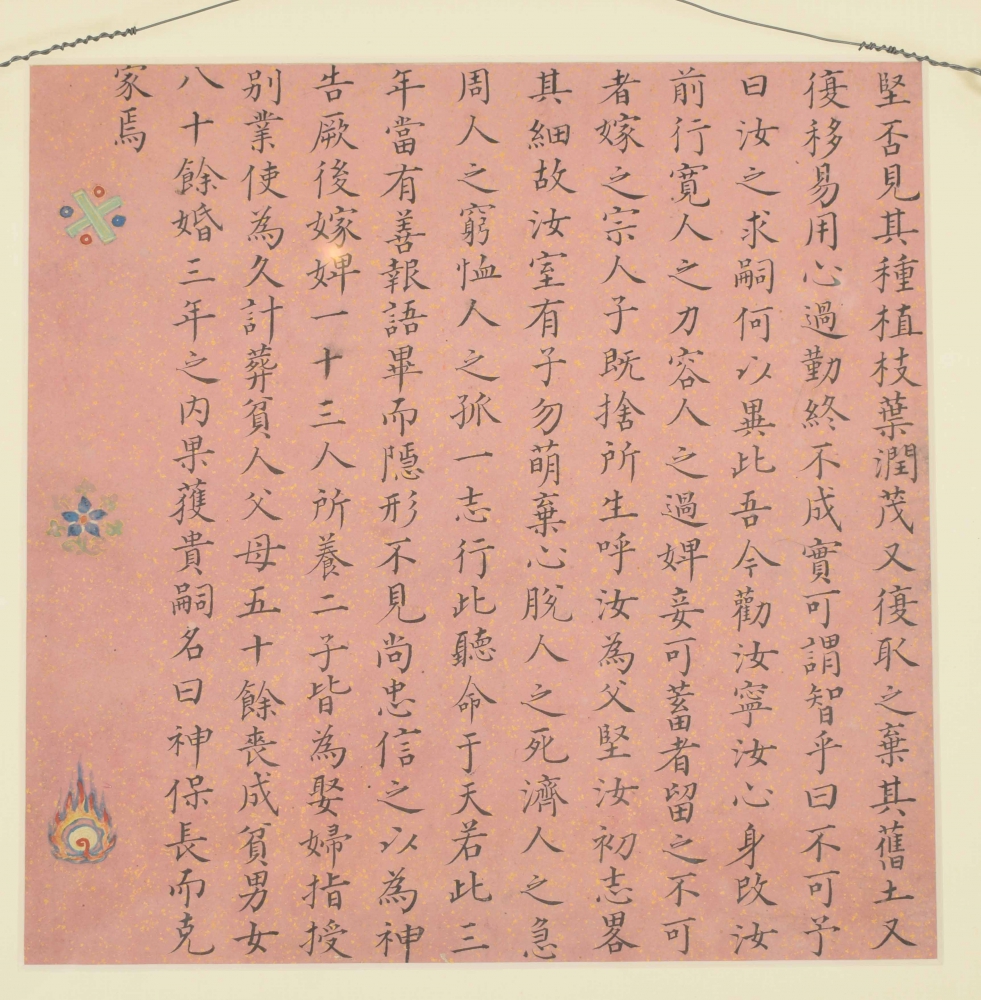 堅否見其種植枝葉潤茂又復取之棄其舊土又
復移易用心過勤終不成實可謂智乎曰不可予
曰汝之求嗣何以異此吾今勸汝寧汝心身改汝
前行寬人之力容人之過婢妾可蓄者留之不可
者嫁之宗人子既捨所生呼汝為父堅汝初志畧
其細故汝室有子勿萌棄心脫人之死濟人之急
周人之窮恤人之孤一志行此聽命于天若此三
年當有善報語畢而隱形不見尚忠信之以為神
告厥後嫁婢一十三人所養二子皆為娶婦指授
別業使為久計葬貧人父母五十餘喪成貧男女
八十餘婚三年之內果獲貴嗣名曰神保長而克
家焉